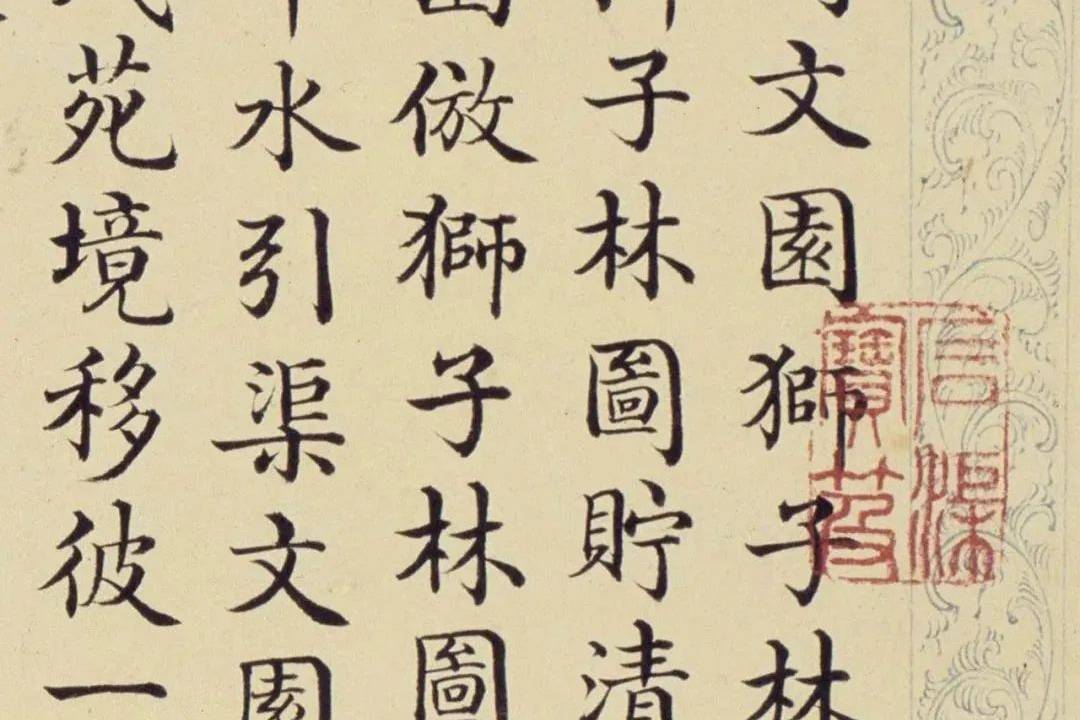 文園獅子林
子林圖貯清
倣獅子林圖
水引渠文園
苑境移彼一
石渠寶笈